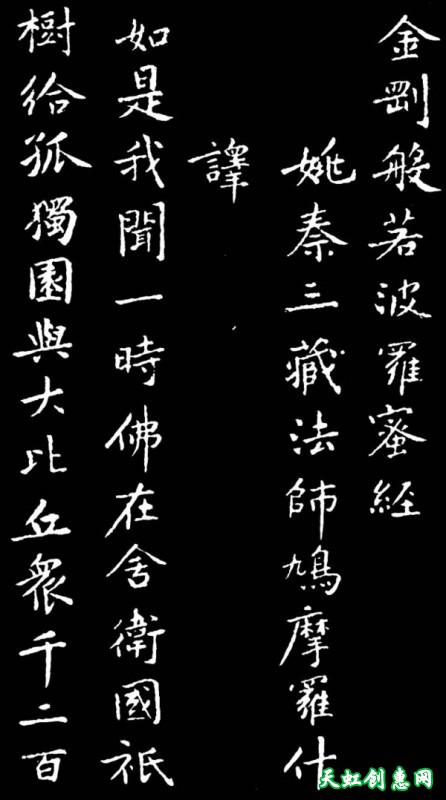 金剛般若波羅蜜經
姚秦三藏法師鳩摩羅什
譯
如是我聞一時佛在舍衛國祇
樹給孤獨園與大比丘衆千二百
天虹创惠网